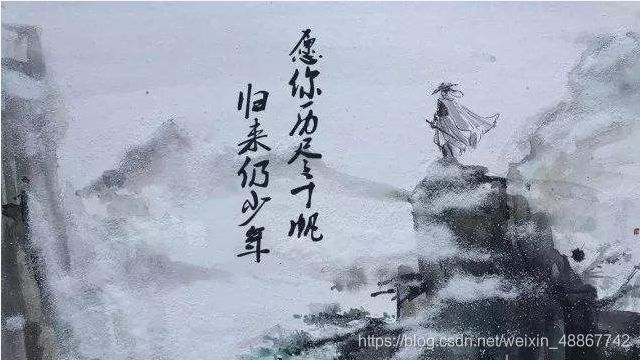 愿你历尽千帆
归来仍少年
https://blog.csdn.net/weixin_48867742